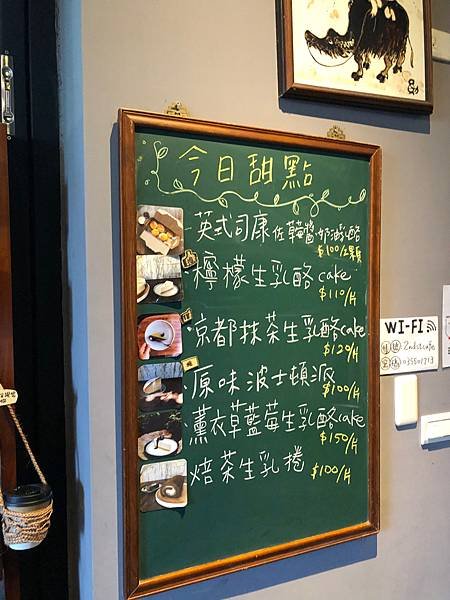 今日甜點
英式司康佐草莓醬.奶油乳酪
$100/2顆
檸檬生乳酪cake
$110/片
京都抹茶生乳酪cake
$120/片
原味波士頓派
$100/片
薰衣草藍莓生乳酪cake
$150/片
焙茶生乳捲 $100/片
WI-FI
帳號:2ndstcafe
密碼:035501713